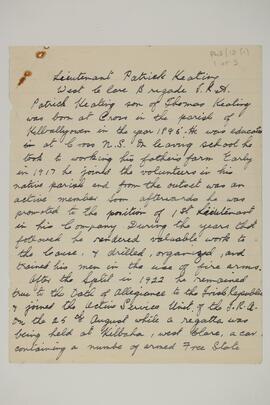 P162/12 (1)
1 of 3
Lieutenant Patrick Keating
West Clare Brigade I.R.A.
Patrick Keating son of Thomas Keating
was born at Cross in the parish of
Kilballyowen in the year 1896. He was educated
in at Cross N.S. On leaving school he
took to working his fathers farm. Early
in 1917 he joined the volunteers in his
native parish and from the outset was an
active member. Soon afterwards he was
promoted to the position of 1st Lieutenant
in his Company. During the years that
followed he rendered valuable work to
the Cause, & drilled, organized, and
trained his men in the use of fire arms.
After the Split in 1922 he remained
true to the Oath of Allegiance to the Irish Republic
& joined the Active Services Unit of the I.R.A.
On the 25th August while a regatta was
being held at Kilbaha, west Clare, a car
containing a number of armed Free State